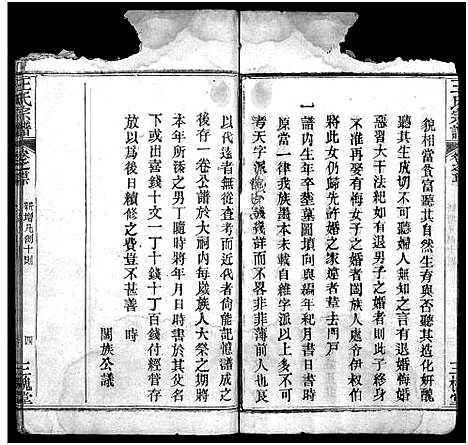 王氏宗譜
貌相當貧富聽其自然生育與否聽其造化妍醜
聽其生成切不可聽婦人無知之言妄退婚悔婚
惡習大干法紀如有退男子之婚者則此子終身
不准再娶有悔女子之婚者闔族人不許令伊叔伯
將此女仍歸先許婚之家違者華去門戶
一譜內生年卒葬墓圖墳向與編年紀月書日書時
原當一律我族墨本未自雜字派以上多不可
考天字派引殘詳而不畧非非薄前人也良
三槐堂
王氏宗譜
新增凡例十則
四
三槐堂
代遠者無從查考而近代者尚能記憶譜成之
後存一卷公譜於大祠內每歲族人大祭之期將
本年所添之男丁隨時將年月日時書於其父名
下或出喜錢十文一丁十錢十丁百錢付經管存
放以爲後日續修之費豈不甚善 時
闔族公議